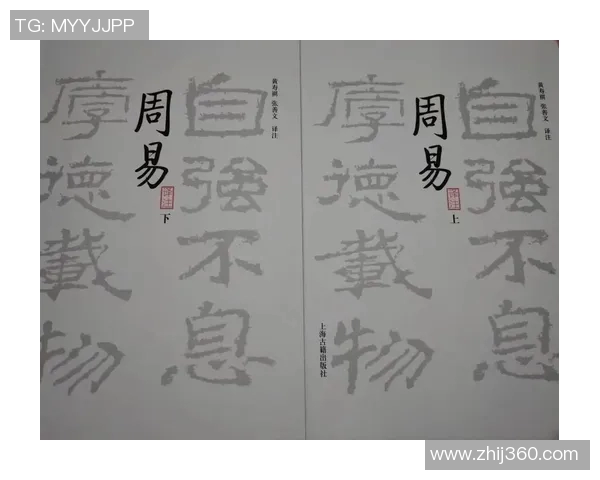 TG: MYYJJPP
自强不息
厚德載物
周易
译注
下
黄寿祺 张善文 译注
自强不息
厚德載物
周易
译注
上
黄寿祺 张善文 译注
上海古籍出版社
www.zhij360.com